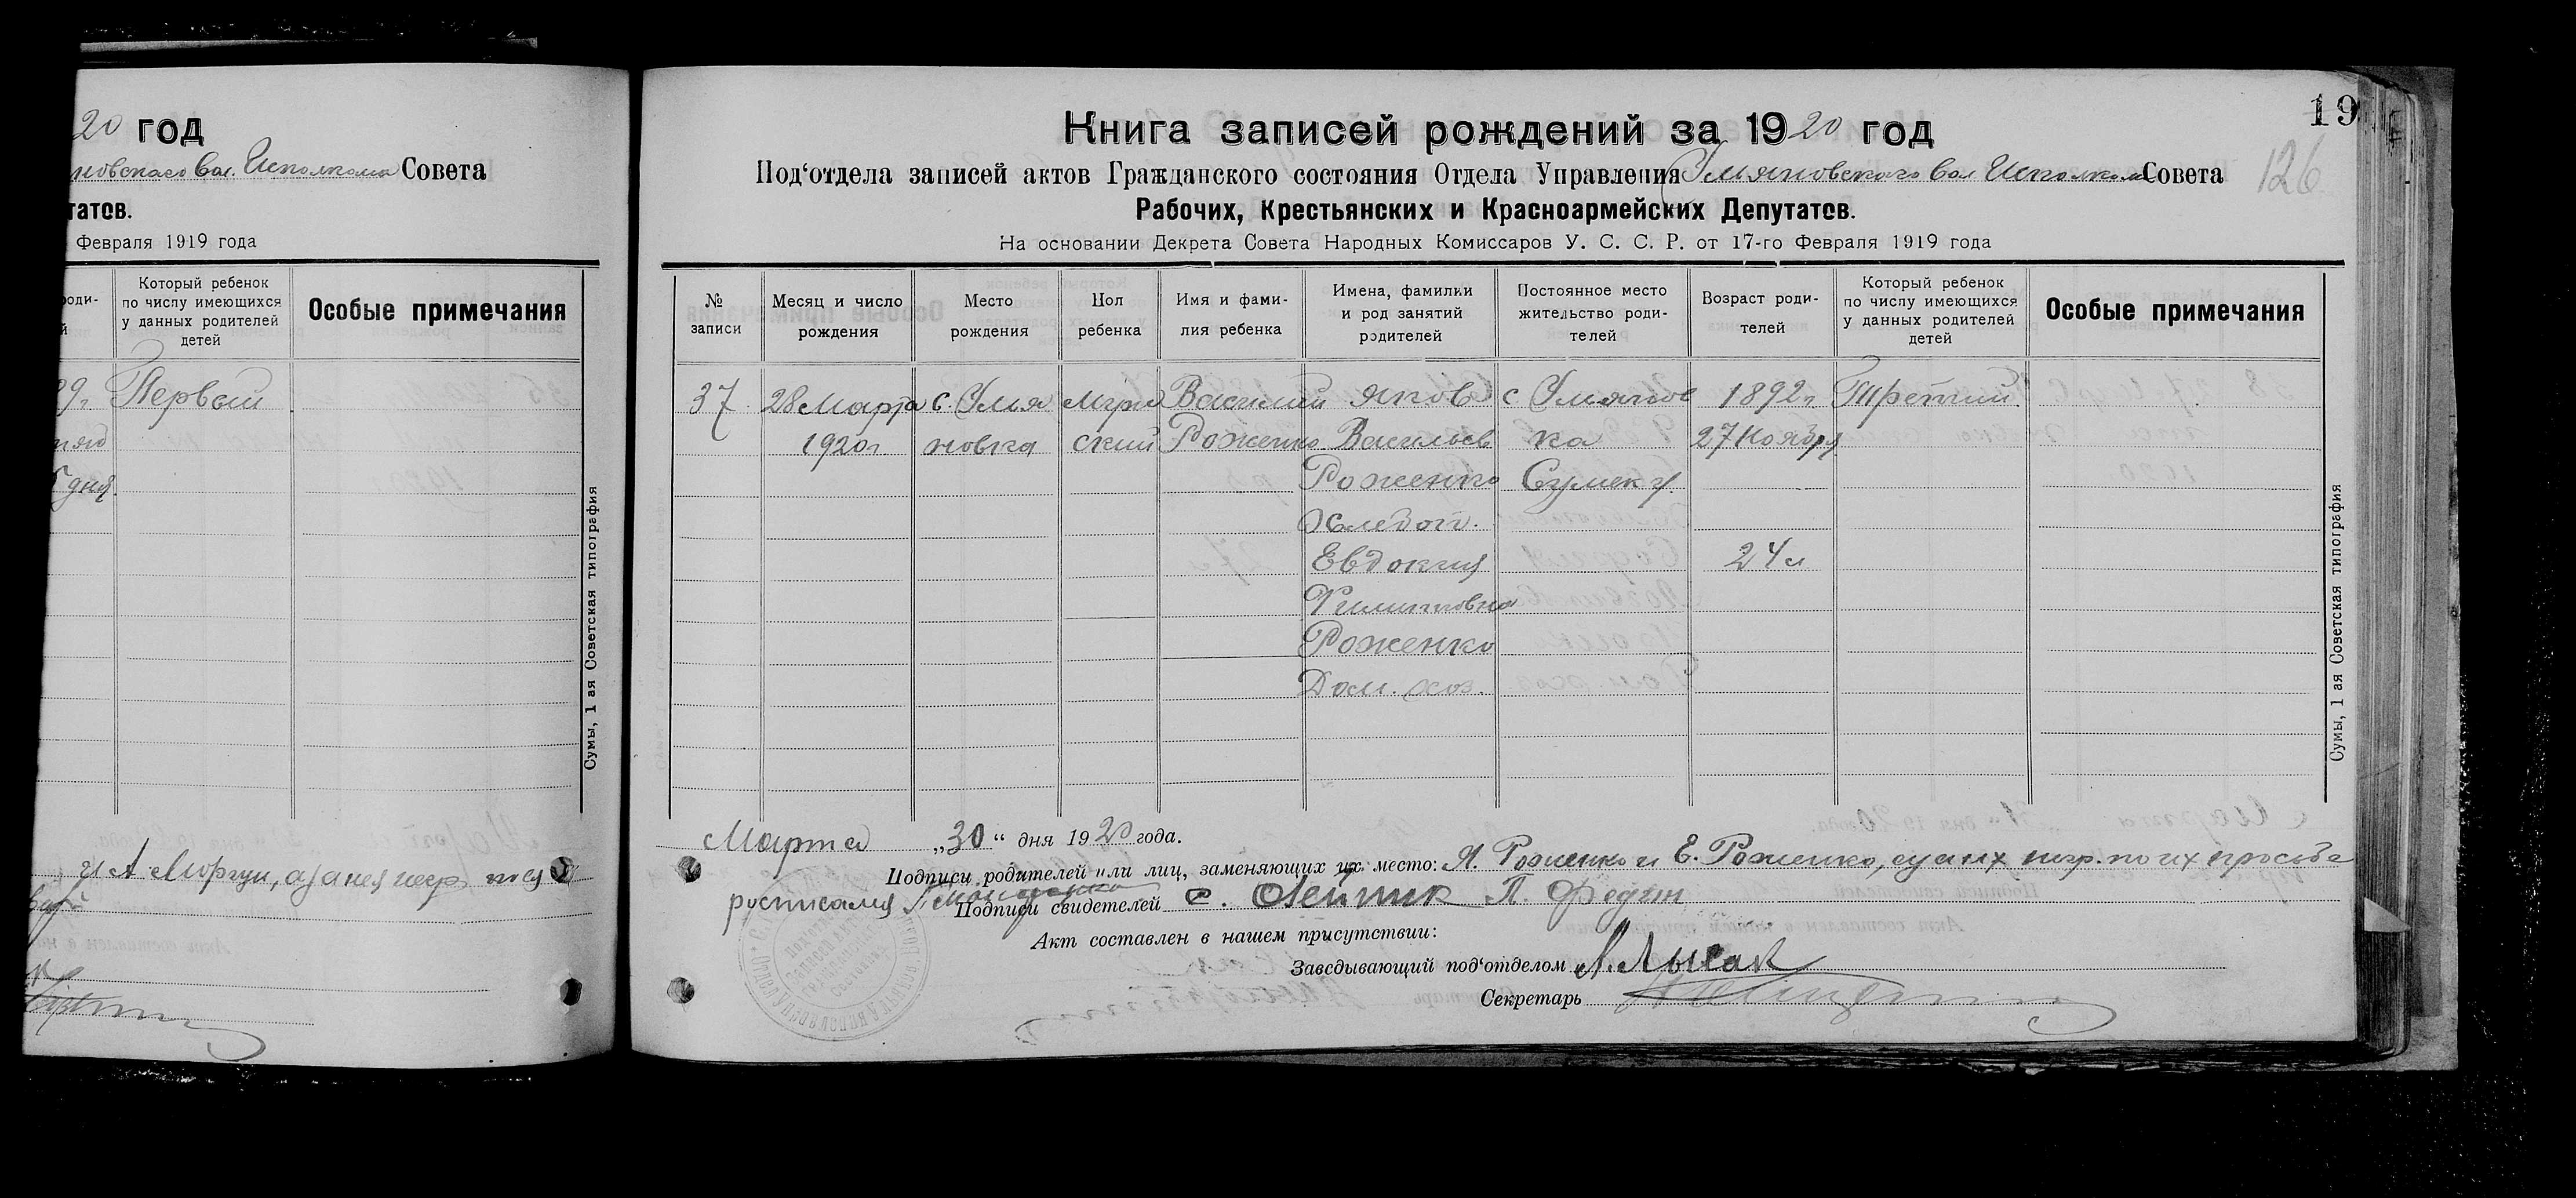 20 год
новскаго Вол. Исполкома Совета
татов.
Февраля 1919 года
Который ребенок по числу имеющихся у данных родителей детей
Особые примечания
Первый
дня
Сумы, 1 ая Советская типография
и А Моргун, а за нея негр.
19
126
Книга записей рождений за 1920 год
Под‘отдела записей актов Гражданского состояния Отдела Управления Вол Исполкома Совета
Рабочих, Крестьянских и Красноармейских Депутатов.
На основании Декрета Совета Народных Комиссаров У. С. С. Р. от 17-го Февраля 1919 года
№ записи
Месяц и число рождения
Место рождения
Пол ребенка
Имя и фамилия ребенка
Имена, фамилии и род занятий родителей
Постоянное место жительство родителей
Возраст родителей
Который ребенок по числу имеющихся у данных родителей детей
Особые примечания
37 28 Марта с. Василий Яков с 1892 г Третий
1920 г новка ский Роженко Васильев ка 27 Ноября
Роженко Сумск у.
Хлебоп.
Евдокия 24 л
Филипповна
Роженко
Дом. хоз.
Сумы, 1 ая Советская типография
Марта „30“ дня 1920 года.
Подписи родителей или лиц, заменяющих их место: Я. Роженко и Е. Роженко, а за них негр. по их просьбе
росписался
Подписи свидетелей С. Олейник П. Федин
Акт составлен в нашем присутствии:
Заведывающий под‘отделом А. Лысак
Секретарь